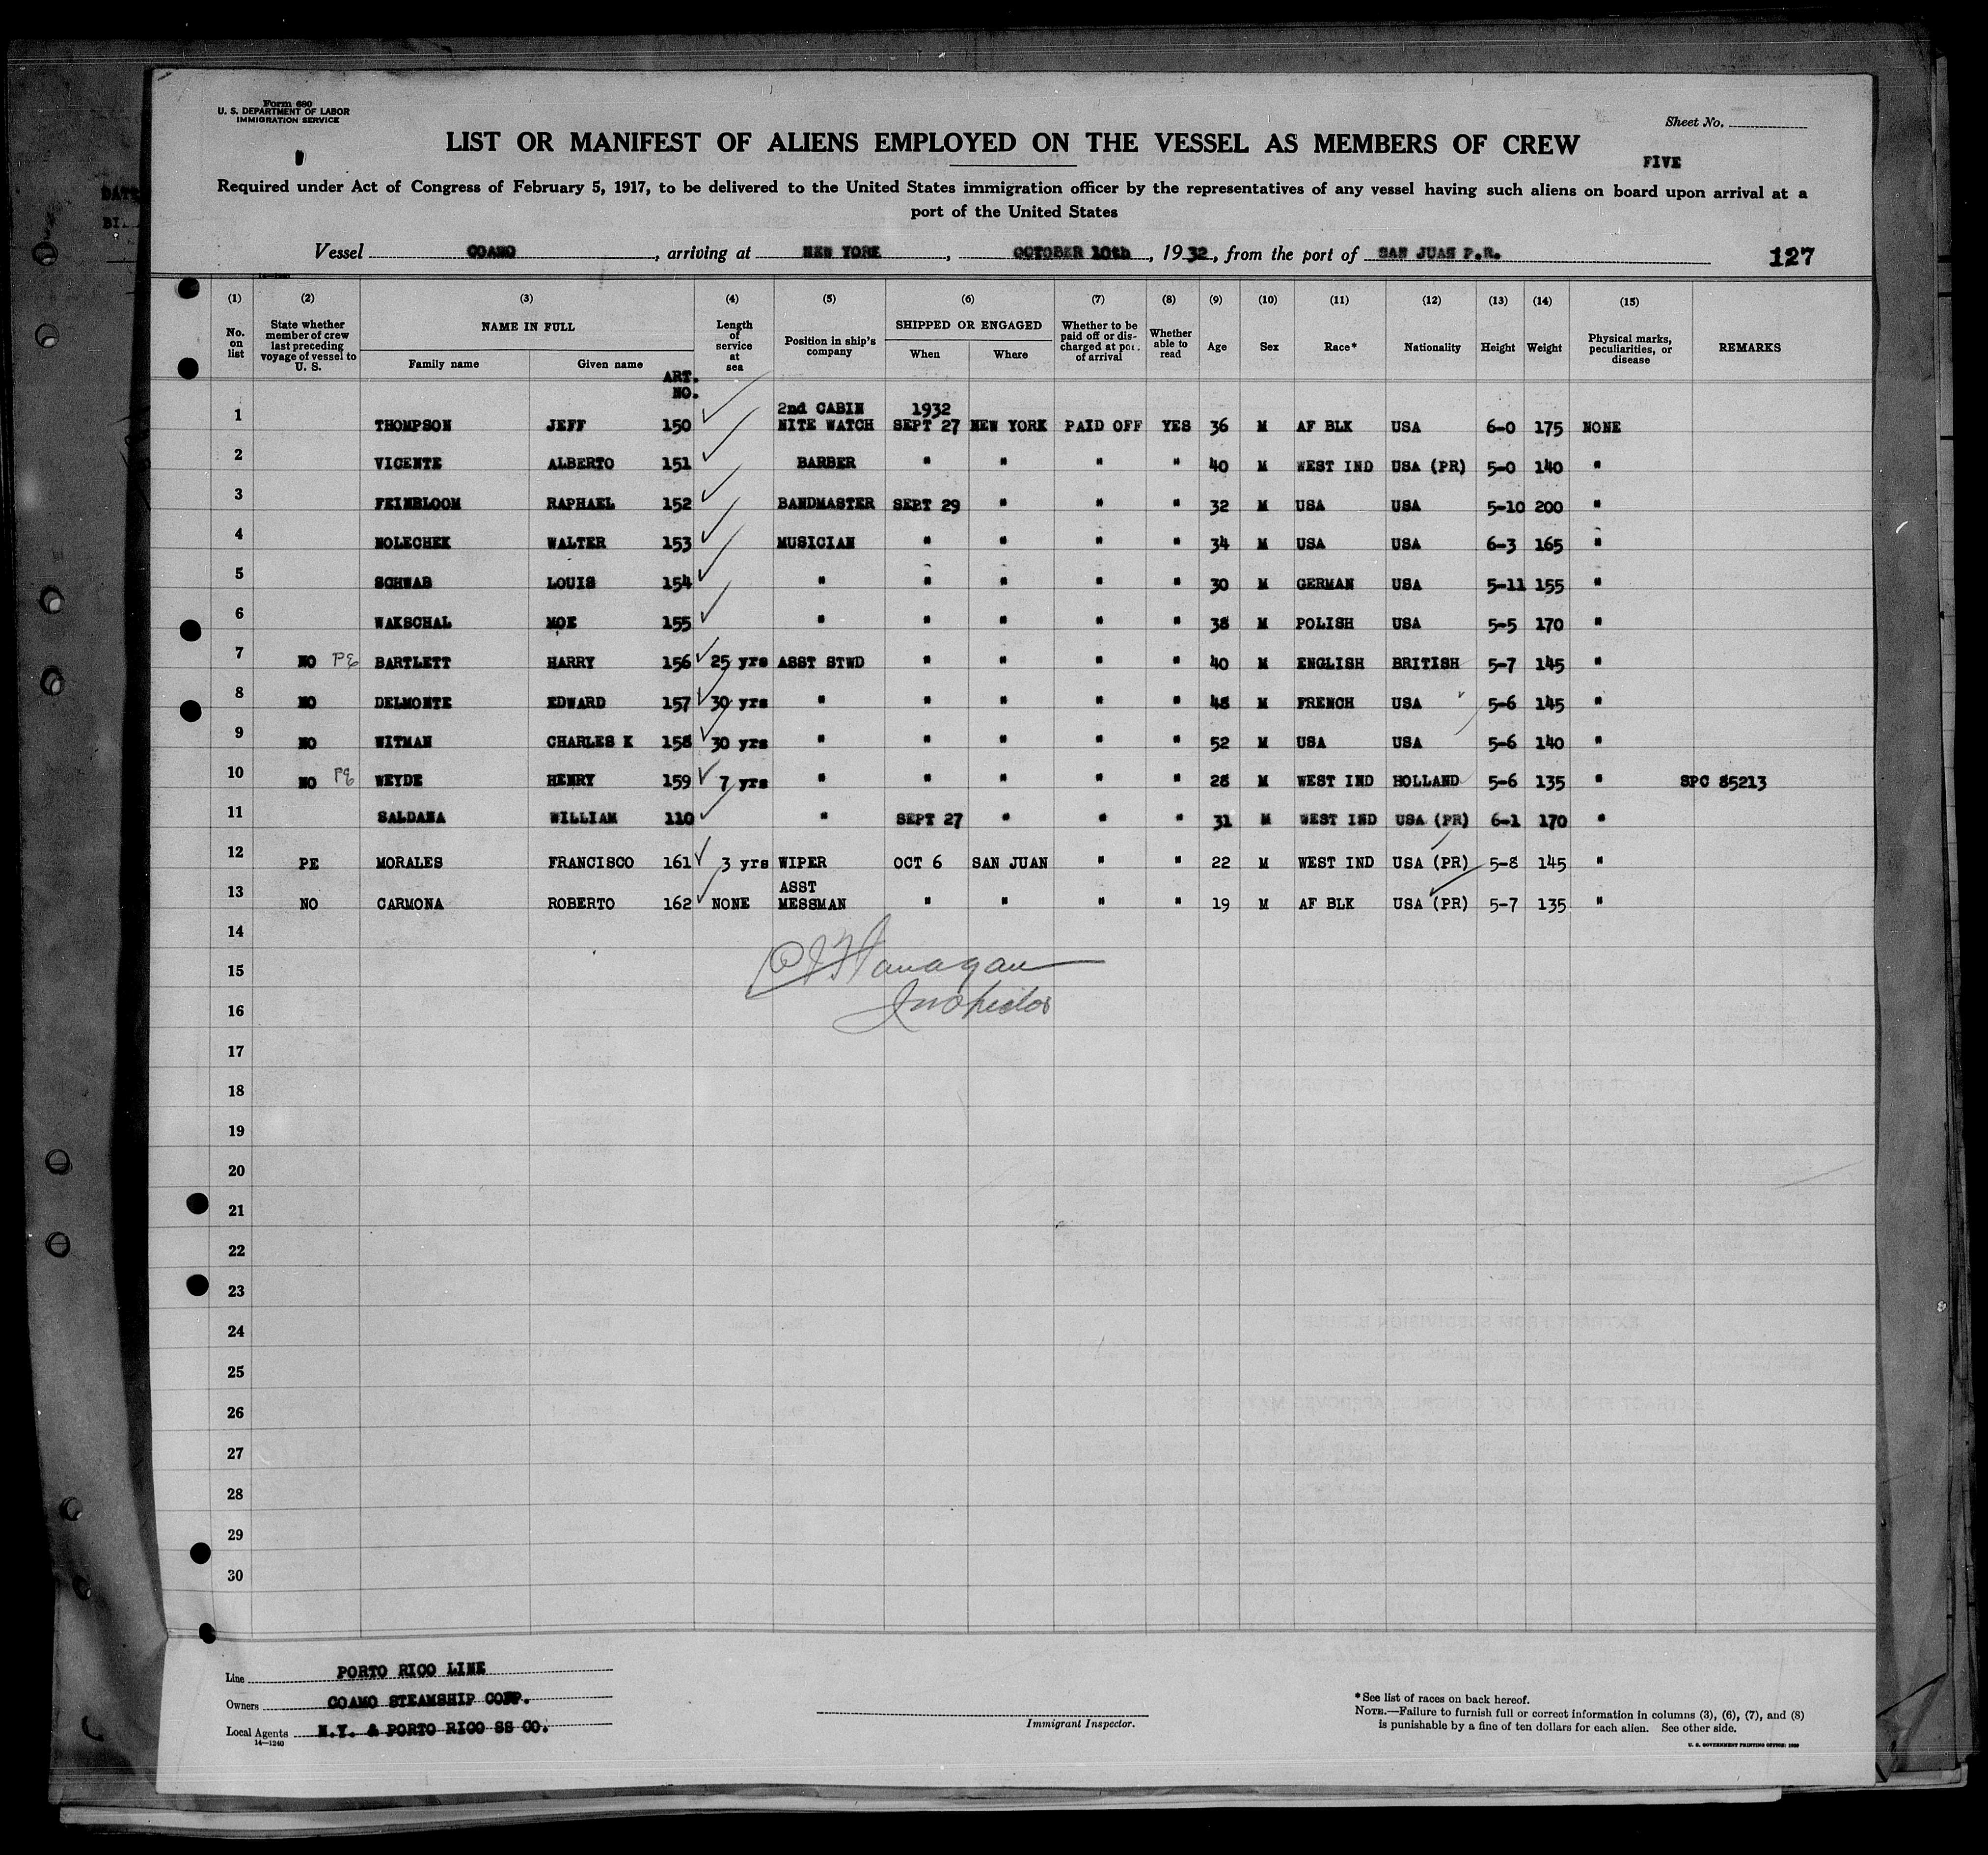 Form 680
U. S. DEPARTMENT OF LABOR
IMMIGRATION SERVICE
Sheet No.
FIVE
LIST OR MANIFEST OF ALIENS EMPLOYED ON THE VESSEL AS MEMBERS OF CREW
Required under Act of Congress of February 5, 1917, to be delivered to the United States immigration officer by the representatives of any vessel having such aliens on board upon arrival at a
port of the United States
Vessel COAMO, arriving at NEW YORK, OCTOBER 10th, 1932, from the port of SAN JUAN P.R. 127
(1) (2) (3) (4) (5) (6) (7) (8) (9) (10) (11) (12) (13) (14) (15)
No. on list State whether member of crew last preceding voyage of vessel to U. S. NAME IN FULL Family name Given name Length of service at sea Position in ship's company SHIPPED OR ENGAGED When Where Whether to be paid off or discharged at port of arrival Whether able to read Age Sex Race* Nationality Height Weight Physical marks, peculiarities, or disease REMARKS
ART. NO.
1 THOMPSON JEFF 150 2nd CABIN NITE WATCH 1932 SEPT 27 NEW YORK PAID OFF YES 36 M AF BLK USA 6-0 175 NONE
2 VICENTE ALBERTO 151 BARBER " " " " 40 M WEST IND USA (PR) 5-0 140 "
3 FEINBLOOM RAPHAEL 152 BANDMASTER SEPT 29 " " " 32 M USA USA 5-10 200 "
4 NOLECHEK WALTER 153 MUSICIAN " " " " 34 M USA USA 6-3 165 "
5 SCHWAB LOUIS 154 " " " " " 30 M GERMAN USA 5-11 155 "
6 WAKSCHAL MOE 155 " " " " " 38 M POLISH USA 5-5 170 "
7 NO PE BARTLETT HARRY 156 25 yrs ASST STWD " " " " 40 M ENGLISH BRITISH 5-7 145 "
8 NO DELMONTE EDWARD 157 30 yrs " " " " " 48 M FRENCH USA 5-6 145 "
9 NO WITMAN CHARLES K 158 30 yrs " " " " " 52 M USA USA 5-6 140 "
10 NO PE WEYDE HENRY 159 7 yrs " " " " " 28 M WEST IND HOLLAND 5-6 135 " SPC 85213
11 SALDANA WILLIAM 110 " SEPT 27 " " " 31 M WEST IND USA (PR) 6-1 170 "
12 PE MORALES FRANCISCO 161 3 yrs WIPER OCT 6 SAN JUAN " " 22 M WEST IND USA (PR) 5-8 145 "
13 NO CARMONA ROBERTO 162 NONE ASST MESSMAN " " " " 19 M AF BLK USA (PR) 5-7 135 "
14
Flanagan
15
Inspector
16
17
18
19
20
21
22
23
24
25
26
27
28
29
30
Line PORTO RICO LINE
Owners COAMO STEAMSHIP CORP.
Local Agents N.Y. & PORTO RICO SS CO.
14—1240
Immigrant Inspector.
*See list of races on back hereof.
NOTE.—Failure to furnish full or correct information in columns (3), (6), (7), and (8)
is punishable by a fine of ten dollars for each alien. See other side.
U. S. GOVERNMENT PRINTING OFFICE: